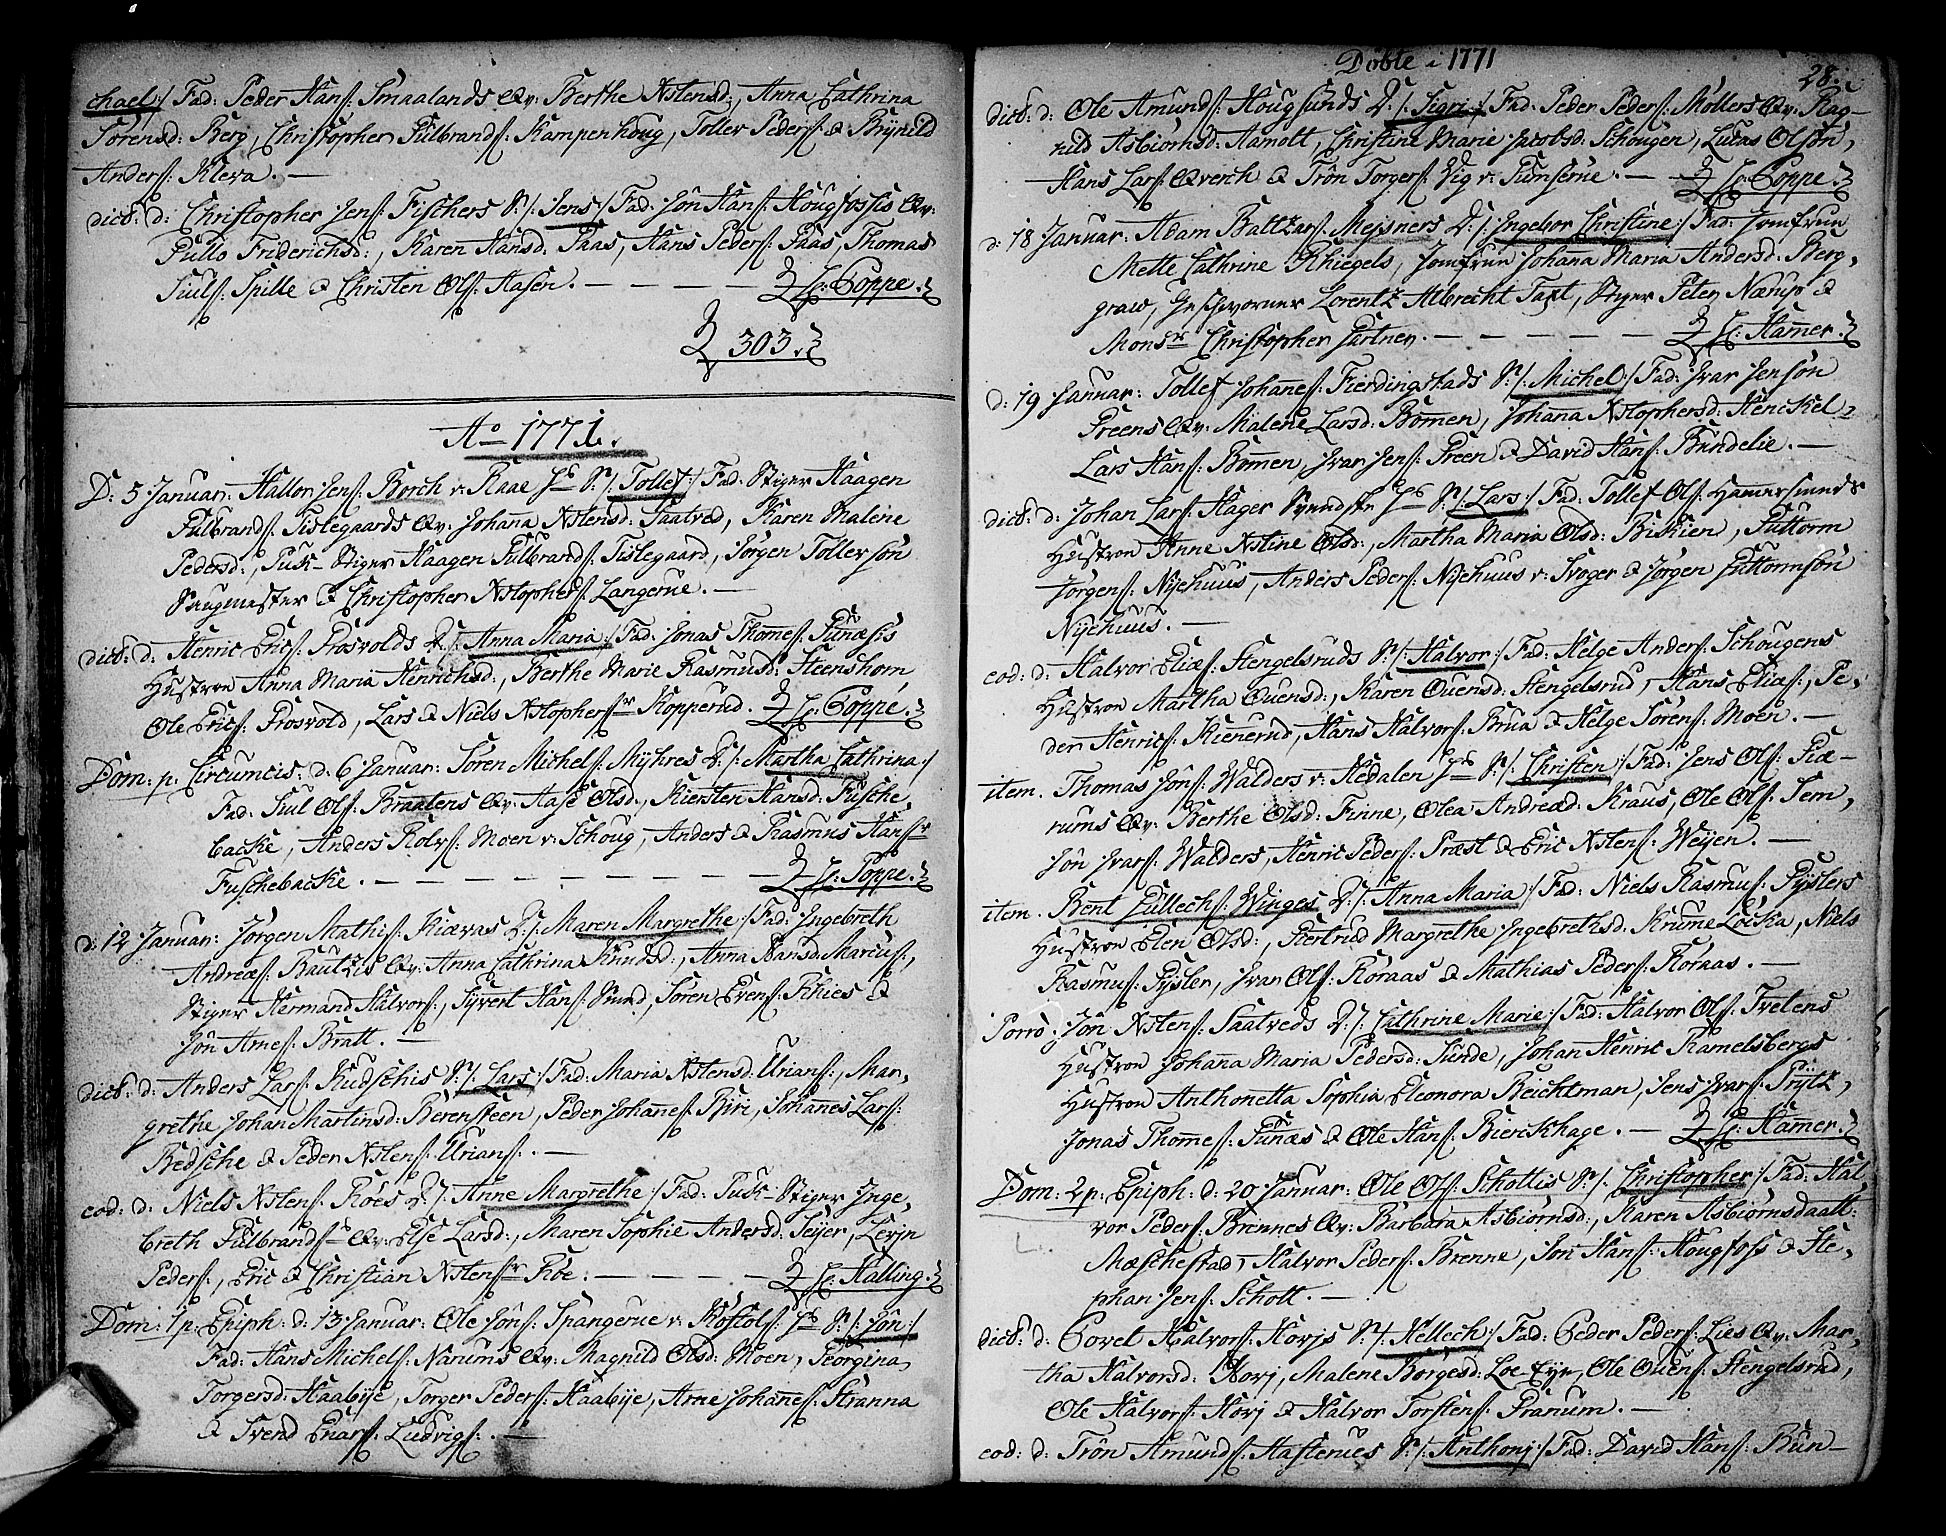 chael:/ Fad: Peder Hans: Smaalands Qv: Berthe Xstensd:, Anna Cathrina
Sörensd: Berg, Christopher Gulbrands: Kampenhoug, Tollev Peders: & Brynild
Anders: Kleva. —
dict: d: Christopher Jens: Fischers S:/: Jens:/ Fad: Jön Hans: Hougfossis Qv:
Gullo Friderichsd:, Karen Hansd: Saas, Hans Peders: Saas, Thomas
Siuls: Spille & Christen Ols: Aasen. — — — — Hr: Coppe.
303.
Ao 1771.
D: 5 Januar: Hallor Jens: Borch v: Raae S:/: Tollef:/ Fad: Stiger Haagen
Gulbrands: Tislegaards Qv: Johanna Xstensd: Saatved, Karen Malene
Pedersd:, Puk-Stiger Haagen Gulbrands: Tislegaard, Jörgen Tollevsön
Saugmester & Christopher Xstophers: Langerue. —
dict: d: Henric Erics: Frosvolds D:/: Anna Maria:/ Fad: Jonas Thomes: Funæsis
Hustroe Anna Maria Henrichsd:, Berthe Marie Rasmusd: Steenshorn,
Ole Erics: Frosvold, Lars & Niels Xstophers:r Kopperud. Hr: Coppe.
Dom: p: Circumcis: d: 6 Januar: Sören Michels: Myhres D:/: Martha Cathrina:/
Fad: Siul Ols: Braatens Qv: Aase Olsd:, Kiersten Hansd: Fusche,
backe, Anders Rolvs: Moen v: Schoug, Anders & Rasmus Hans:r
Fuschebacke. — — — — — — — Hr: Poppe.
d: 12 Januar: Jörgen Mathis: Kiævas D:/: Maren Margrethe:/ Fad: Ingebreth
Andreæs: Bautzis Qv: Anna Cathrina Knudsd:, Anna Hansd: Marcus:,
Stiger Hermand Halvors:, Syvert Hans: Sund, Sören Evens: Fihies &
Jön Arnes: Bratt. —
dict: d: Anders Lars: Kudschis S:/: Lars:/ Fad: Maria Xstensd: Urians:, Mar,
grethe Johan Martinsd: Berensteen, Peder Johannes: Biri, Johannes Lars:
Bedsche & Peder Xstens: Urians:. —
eod: d: Niels Xstens: Röes D:/: Anne Margrethe:/ Fad: Puk-Stiger Inge,
breth Gulbrands: Qv: Else Larsd:, Maren Sophie Andersd: Seyer, Levin
Peders:, Eric & Christian Xstens:r Röe: — — — — Hr: Halling.
Dom: 1 p: Epiph: d: 13 Januar: Ole Jöns: Spangerue v: Kostols: S:/: Jön:/
Fad: Hans Michels: Narums Qv: Magnild Olsd: Moen, Georgina
Torgersd: Haabye, Torger Peders: Haabye, Arne Johannes: Stranna
& Svend Enars: Ludvigs:. —
Döbte i 1771
28.
dict: d: Ole Amunds: Hougsunds D:/: Segri:/ Fad: Peder Peders: Möllers Qv: Rag-
nild Asbiörnsd: Aamott, Christine Marie Jacobsd: Schougen, Lucas Olsön,
Hans Lars: Qverch & Trön Torgers: Vig v: Gumserue. — Hr: Coppe.
d: 18 Januar: Adam Baltzars: Meisners D:/: Ingebor Christine:/ Fad: Jomfrun
Mette Cathrine Rhiegels, Jomfrun Johana Maria Andersd: Berg,
graw, Geschworner Lorentz Albrecht Taxt, Stiger Peter Nærup &
Monsr Christopher Gartner. — — — — — Hr: Hamer.
d: 19 Januar: Tollef Johanes: Fierdingstads S:/: Michel:/ Fad: Ivar Jensön
Preens Qv: Malene Larsd: Bömen, Johana Xstophersd: Henckel,
Lars Hans: Bömen, Ivar Jens: Preen & David Hans: Bundelie. —
dict: d: Johan Lars: Hager S:/: Lars:/ Fad: Tollef Ols: Hammersunds
Hustroe Anne Xstine Olsd:, Martha Maria Olsd: Biskien, Guttorm
Jörgens: Nyehuus, Anders Peders: Nyehuus v: Tvoger & Jörgen Guttormsön
Nyehuus. —
eod: d: Halvor Eliæs: Stengelsruds S:/: Halvor:/ Fad: Helge Anders: Schougens
Hustroe Martha Ouensd:, Karen Ouensd: Stengelsrud, Hans Eliæs:, Pe,
der Henrics: Kienerud, Hans Halvors: Brua & Helge Sörens: Moen. —
item. Thomas Jöns: Walders v: Hedalen S:/: Christen:/ Fad: Jens Ols: Giæ-
rums Qv: Berthe Olsd: Finne, Olea Andreæd: Kraus, Ole Ols: Sem,
Jön Ivars: Walders, Henric Peders: Præst & Eric Xstens: Weyen. —
item. Bent Gullechs: Winges D:/: Anna Maria:/ Fad: Niels Rasmus: Gyslers
Hustroe Elen Olsd:, Gertrud Margrethe Ingebrethsd: Krume Löcka, Niels
Rasmus: Gysler, Ivar Ols: Röraas & Mathias Peders: Röraas. —
Porrò: Jön Xstens: Saatveds D:/: Cathrine Marie:/ Fad: Halvor Ols: Tvetens
Hustroe Johanna Maria Pedersd: Sunde, Johan Henric Ramelsbergs
Hustroe Anthonetta Sophia Eleonora Reichtman, Jens Ivars: Prytz,
Jonas Thomes: Funæs & Ole Hans: Bierckhage. — Hr: Hamer.
Dom: 2 p: Epiph: d: 20 Januar: Ole Ols: Schottis S:/: Christopher:/ Fad: Hal,
vor Peders: Brennes Qv: Barbara Asbiörnsd:, Karen Asbiörnsdaatt:
Mæschestad, Halvor Peders: Brenne, Jön Hans: Hougfoss & Ste,
phan Jens: Schott. —
dict: d: Povel Halvors: Hovjs S:/: Kellech:/ Fad: Peder Peders: Lies Qv: Mar,
tha Halvorsd: Hovj, Malene Borgesd: Loe-Eye, Ole Ouens: Stengelsrud,
Ole Halvors: Hovj & Halvor Torstens: Granum. —
eod: d: Trön Amunds: Hastenues S:/: Anthonj:/ Fad: David Hans: Bun-